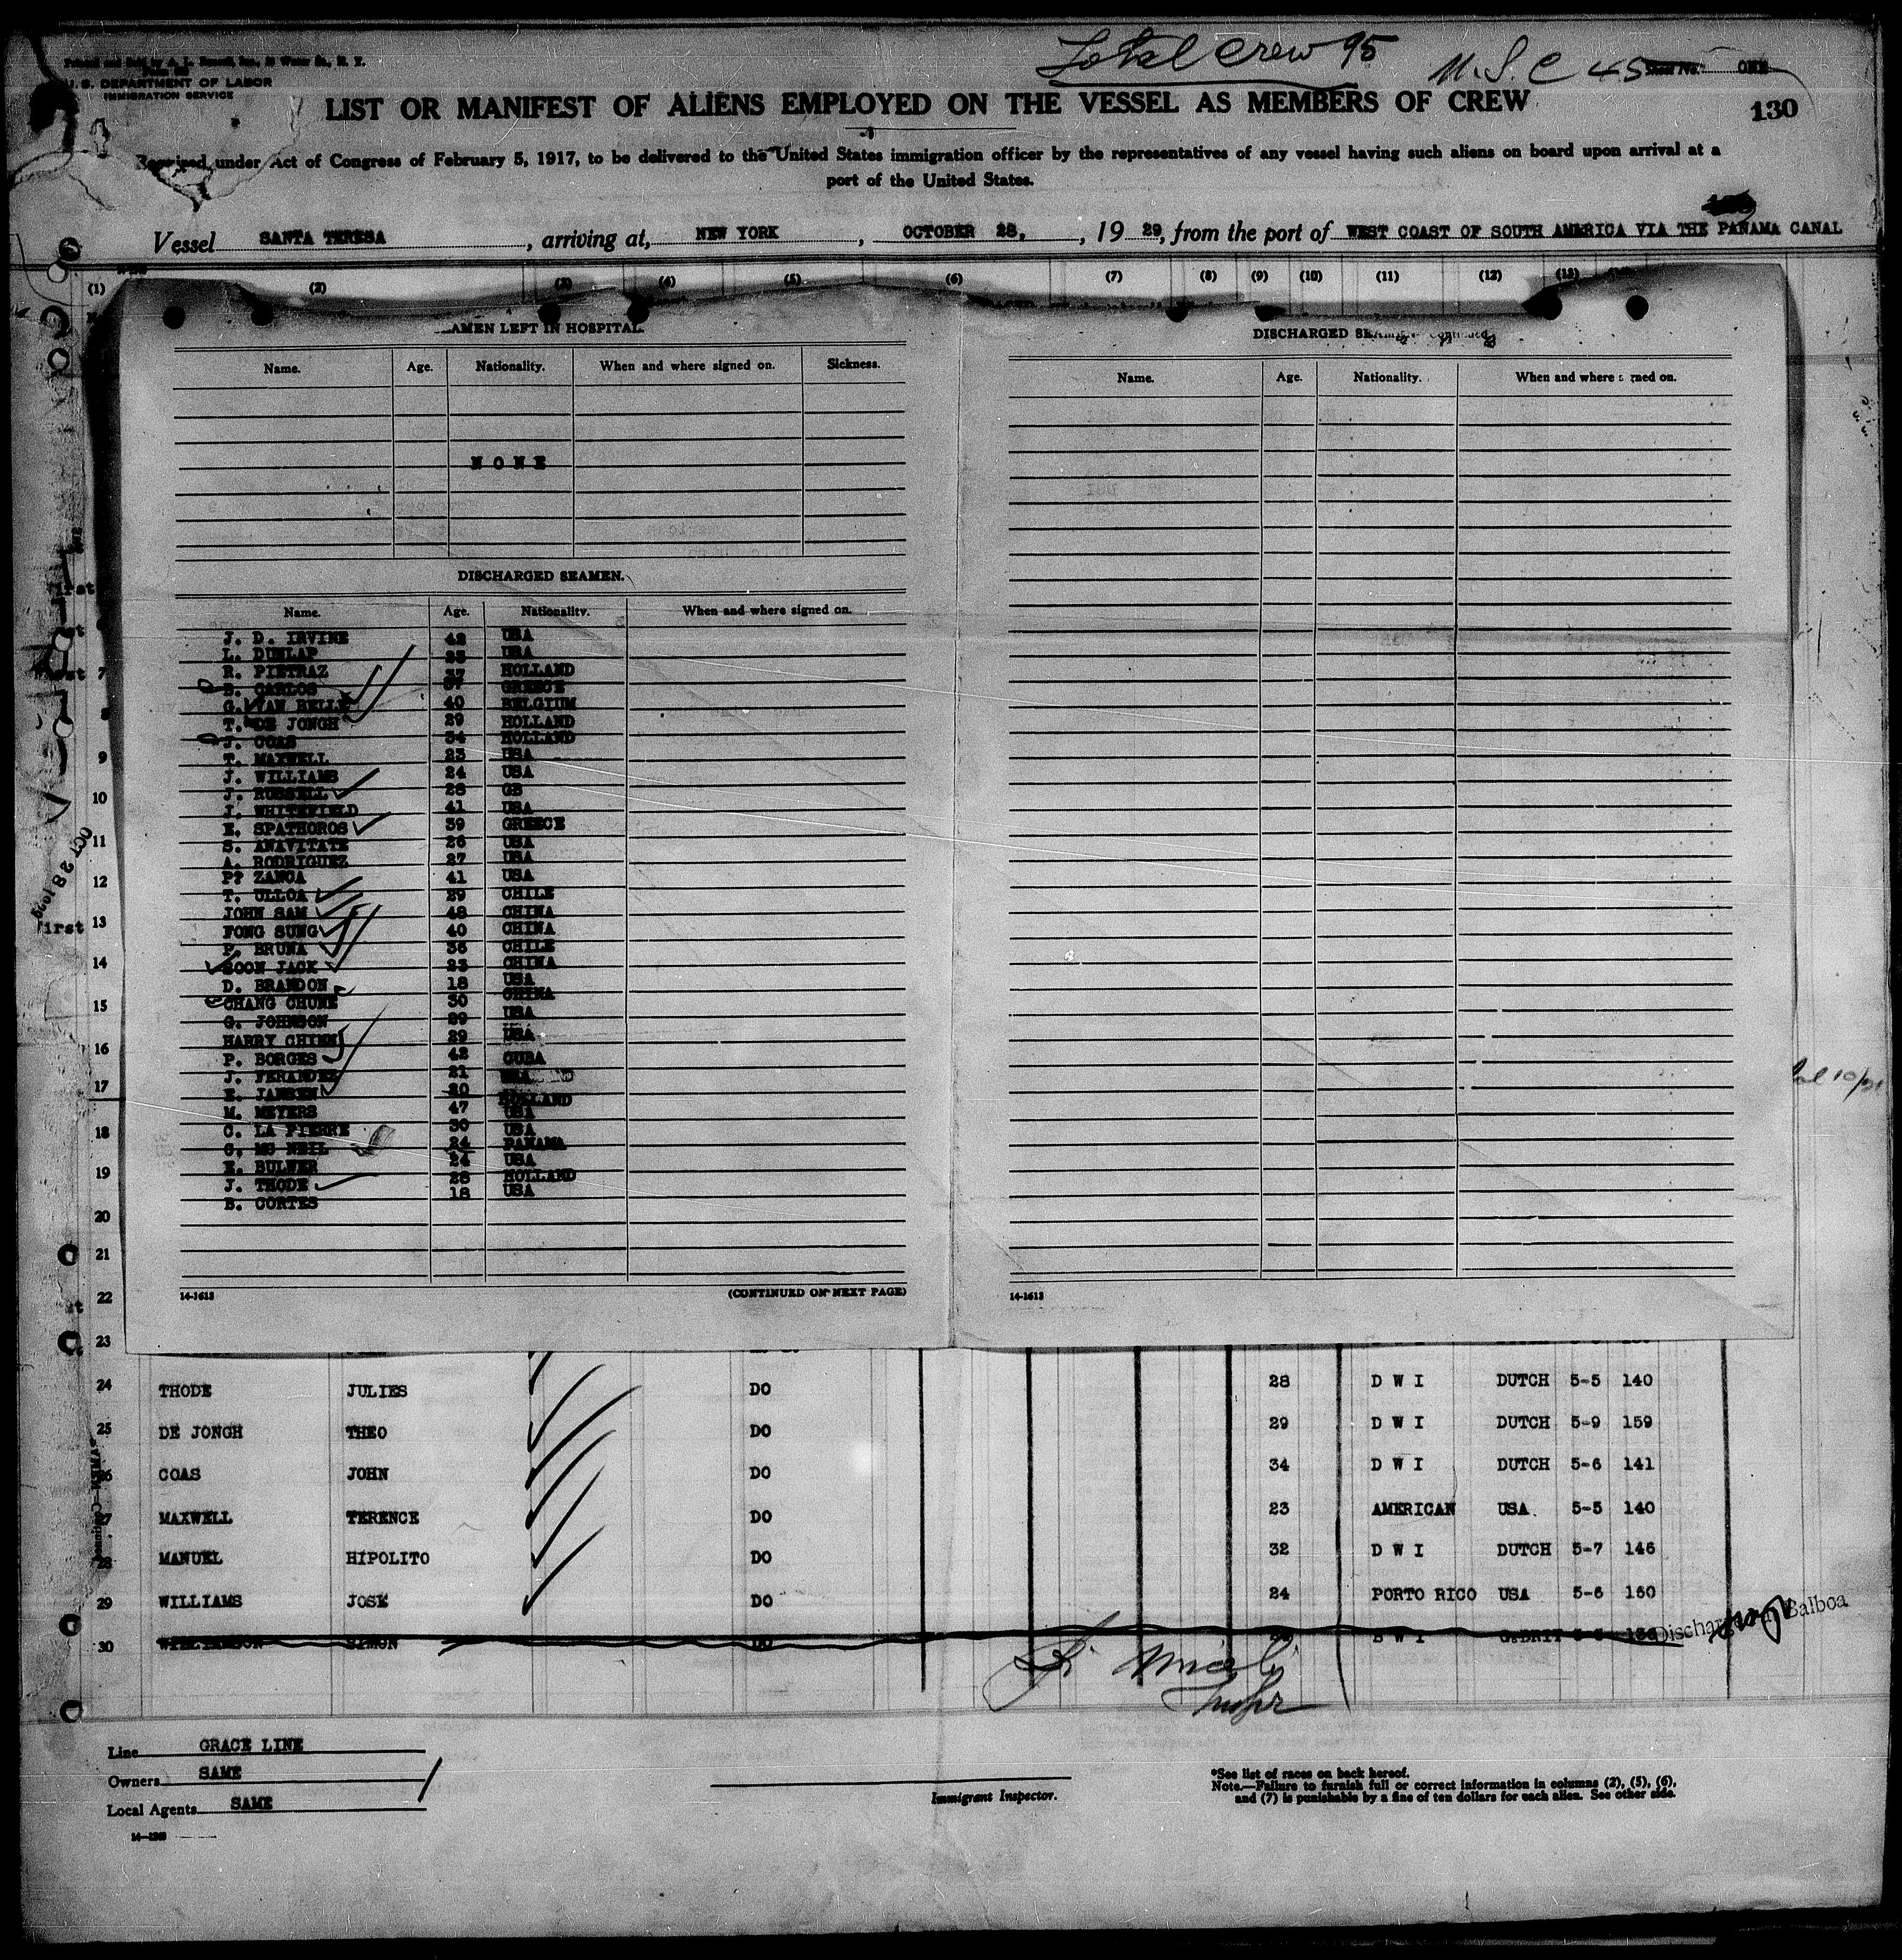 Total Crew 95
U.S.C 45
ONE
U. S. DEPARTMENT OF LABOR
IMMIGRATION SERVICE
LIST OR MANIFEST OF ALIENS EMPLOYED ON THE VESSEL AS MEMBERS OF CREW
130
Required under Act of Congress of February 5, 1917, to be delivered to the United States immigration officer by the representatives of any vessel having such aliens on board upon arrival at a
port of the United States.
Vessel SANTA TERESA, arriving at, NEW YORK, OCTOBER 28, 1929, from the port of WEST COAST OF SOUTH AMERICA VIA THE PANAMA CANAL
(1) (2) (3) (4) (5) (6) (7) (8) (9) (10) (11) (12) (13)
AMEN LEFT IN HOSPITAL.
Name. Age. Nationality. When and where signed on. Sickness.
NONE
DISCHARGED SEAMEN.
Name. Age. Nationality. When and where signed on.
J. D. IRVINE 42 USA
L. DUNLAP 23 USA
R. PIETRAZ 37 HOLLAND
B. CARLOS 37 GREECE
G. VAN BELLE 40 BELGIUM
T. DE JONGH 29 HOLLAND
J. COAS 34 HOLLAND
T. MAXWELL 23 USA
J. WILLIAMS 24 USA
J. RUSSELL 28 GB
J. WHITEFIELD 41 USA
E. SPATHOROS 39 GREECE
S. ANAVITATE 26 USA
A. RODRIGUEZ 27 USA
P? ZANCA 41 USA
T. ULLOA 29 CHILE
JOHN SAM 48 CHINA
FONG SUNG 40 CHINA
P. BRUNA 36 CHILE
SOON JACK 23 CHINA
D. BRANDON 18 USA
CHANG CHUNE 30 CHINA
G. JOHNSON 29 USA
HARRY CHINN 29 USA
P. BORGES 42 CUBA
J. FERANDEZ 21
E. JANSEN 20 HOLLAND
M. MEYERS 47 USA
C. LA PIERRE 30 USA
C. MC NEIL 24 PANAMA
E. BULWER 24 USA
J. THODE 28 HOLLAND
B. CORTES 18 USA
14-1613 (CONTINUED ON NEXT PAGE)
DISCHARGED SEAMEN Continued
Name. Age. Nationality. When and where signed on.
14-1613
7
8
9
10
11
12
13
14
15
16
17
18
19
20
21
22
23
OCT 28 1929
first
24 THODE JULIES DO 28 D W I DUTCH 5-5 140
25 DE JONGH THEO DO 29 D W I DUTCH 5-9 159
26 COAS JOHN DO 34 D W I DUTCH 5-6 141
27 MAXWELL TERENCE DO 23 AMERICAN USA 5-5 140
28 MANUEL HIPOLITO DO 32 D W I DUTCH 5-7 146
29 WILLIAMS JOSE DO 24 PORTO RICO USA 5-6 150
30 SIMON DO W I G.BRIT
Balboa
Line GRACE LINE
Owners SAME
Local Agents SAME
Immigrant Inspector.
*See list of races on back hereof.
Note.—Failure to furnish full or correct information in columns (2), (5), (6),
and (7) is punishable by a fine of ten dollars for each alien. See other side.